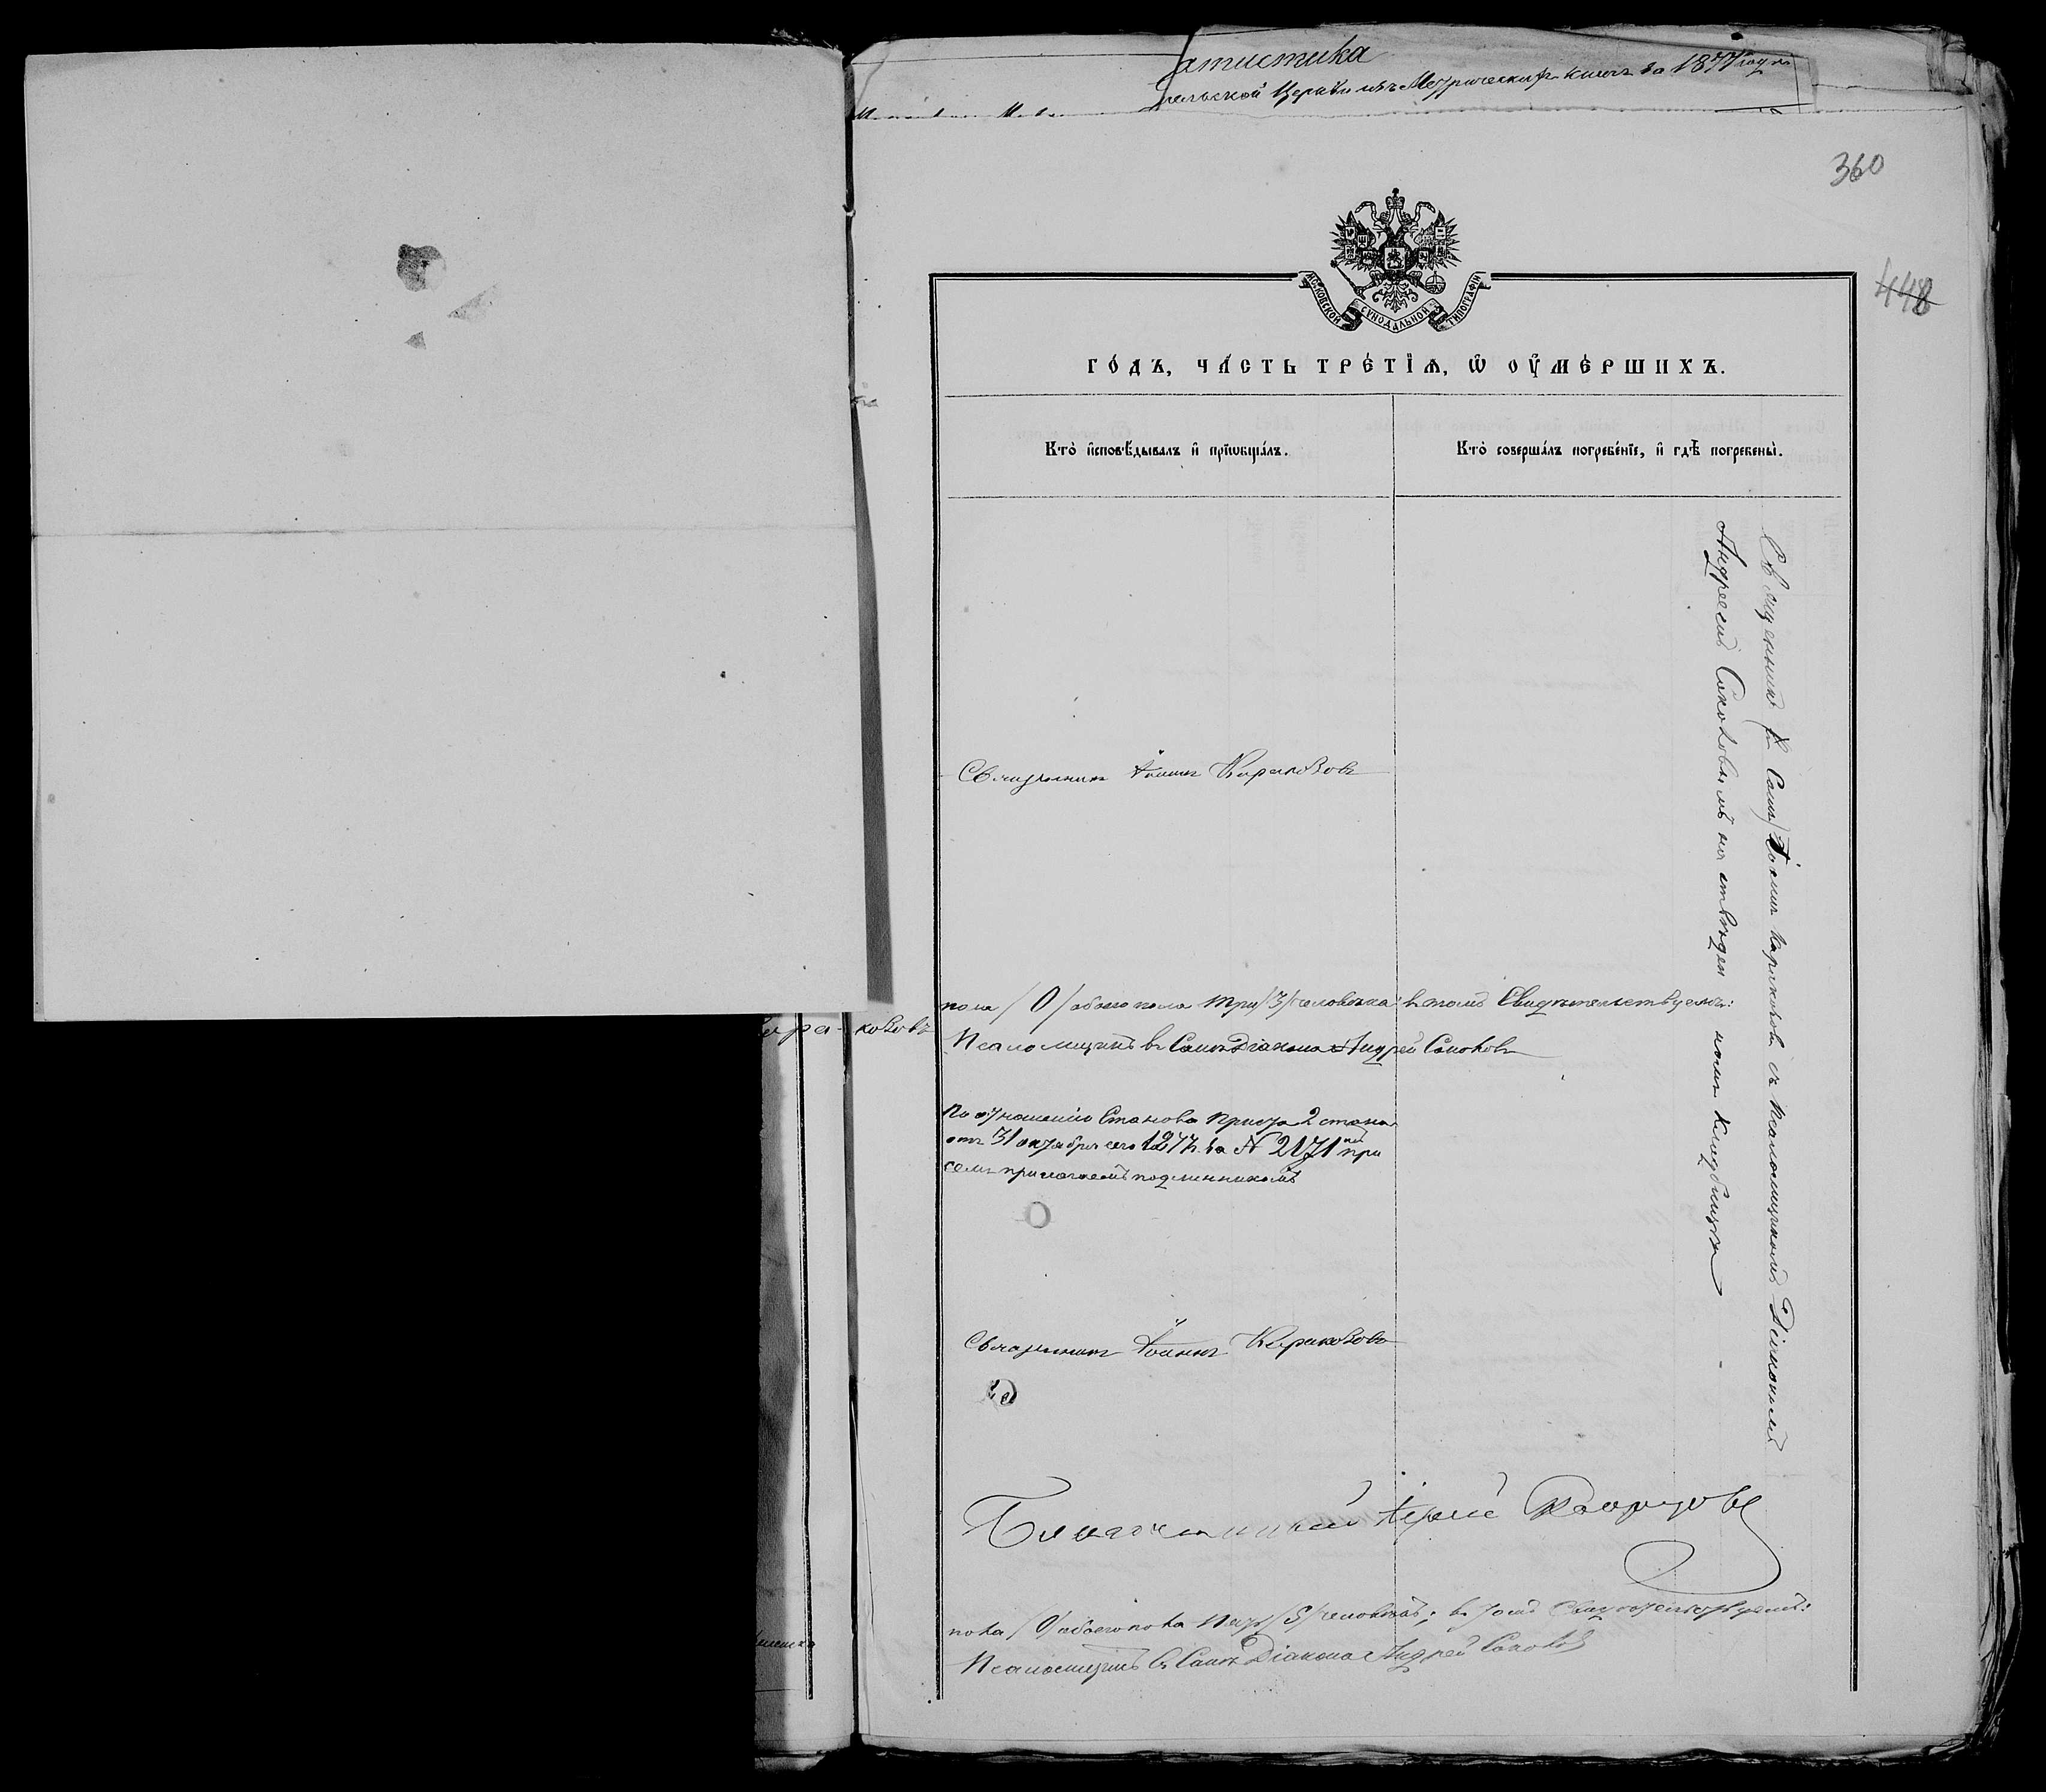 атистика
Церкви изъ Метрическихъ книгъ за 1877 годъ
360
448
МОСКОВСКОЙ СѴНОДАЛЬНОЙ ТИПОГРАФІИ
ГО́ДЪ, ЧА́СТЬ ТРЕ́ТІѦ, Ѡ҆ ОУ҆МЕ́РШИХЪ.
Кто̀ и҆сповѣ́дывалъ и҆ прїѡбща́лъ.
Кто̀ соверша́лъ погребе́нїе, и҆ гдѣ̀ погребены̀.
Священникъ Іоаннъ Караковъ
Священникъ Іоаннъ Караковъ съ Псаломщикомъ Діакономъ
Андреемъ Соколовымъ на отведен номъ кладбищѣ
пола /0/ обоего пола три /3/ человѣка: въ томъ Свидѣтельствуемъ:
коковъ
Псаломщикъ въ Санѣ Діакона Андрей Соколовъ
По отношенію Станова Приста 2 стана
отъ 31 октября сего 1877 г. за № 2171 при
семъ прилагаемъ подлинникомъ
Священникъ Іоаннъ Караковъ
Благочинный Іерей
пола /0/ обоего пола Пять /5/ человѣкъ; въ томъ Свидѣтельствуемъ:
Псаломщикъ въ Санѣ Діакона Андрей Соколовъ